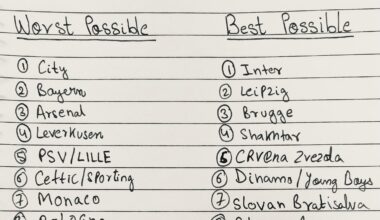 Worst Possible
Best Possible
① City
② Bayern
③ Arsenal
④ Leverkusen
⑤ PSV/LILLE
⑥ Celtic/Sporting
⑦ Monaco
① Inter
② Leipzig
③ Brugge
④ Shakhtar
⑤ CRVena Zvezda
⑥ Dinamo/Young Boys
⑦ Slovan Bratislava